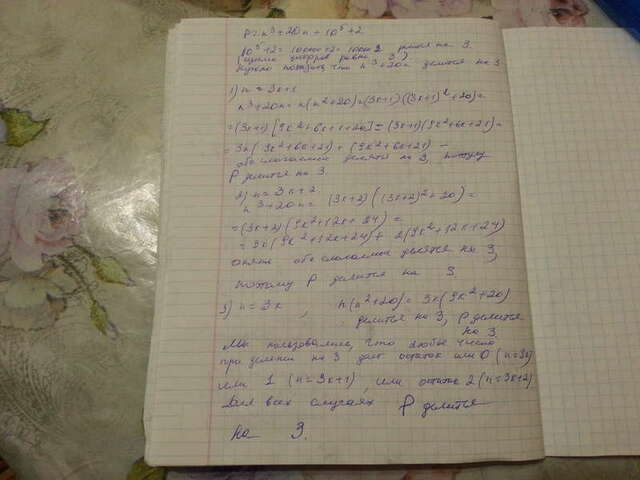 P = n³ + 20n + 10⁵ + 2
10⁵ + 2 = 100000 + 2 = 100002 делится на 3
(сумма цифр равна 3)
Нужно показать, что n³ + 20n делится на 3
1) n = 3x+1
n³ + 20n = n(n² + 20) = (3x+1)((3x+1)² + 20) =
= (3x+1)[9x² + 6x + 1 + 20] = (3x+1)(9x² + 6x + 21) =
= 3x(9x² + 6x + 21) + (9x² + 6x + 21) –
оба слагаемых делятся на 3, поэтому
P делится на 3
2) n = 3x+2
n³ + 20n = (3x+2)((3x+2)² + 20) =
= (3x+2)(9x² + 12x + 24) =
= 3x(9x² + 12x + 24) + 2(9x² + 12x + 24)
опять оба слагаемых делятся на 3,
поэтому P делится на 3.
3) n = 3x, n(n² + 20) = 3x(9x² + 20)
делится на 3, P делится
на 3.
Мы пользовались, что любое число
при делении на 3 дает остаток или 0 (n = 3x)
или 1 (n = 3x+1), или остаток 2 (n = 3x+2)
Для всех случаях P делится
на 3.